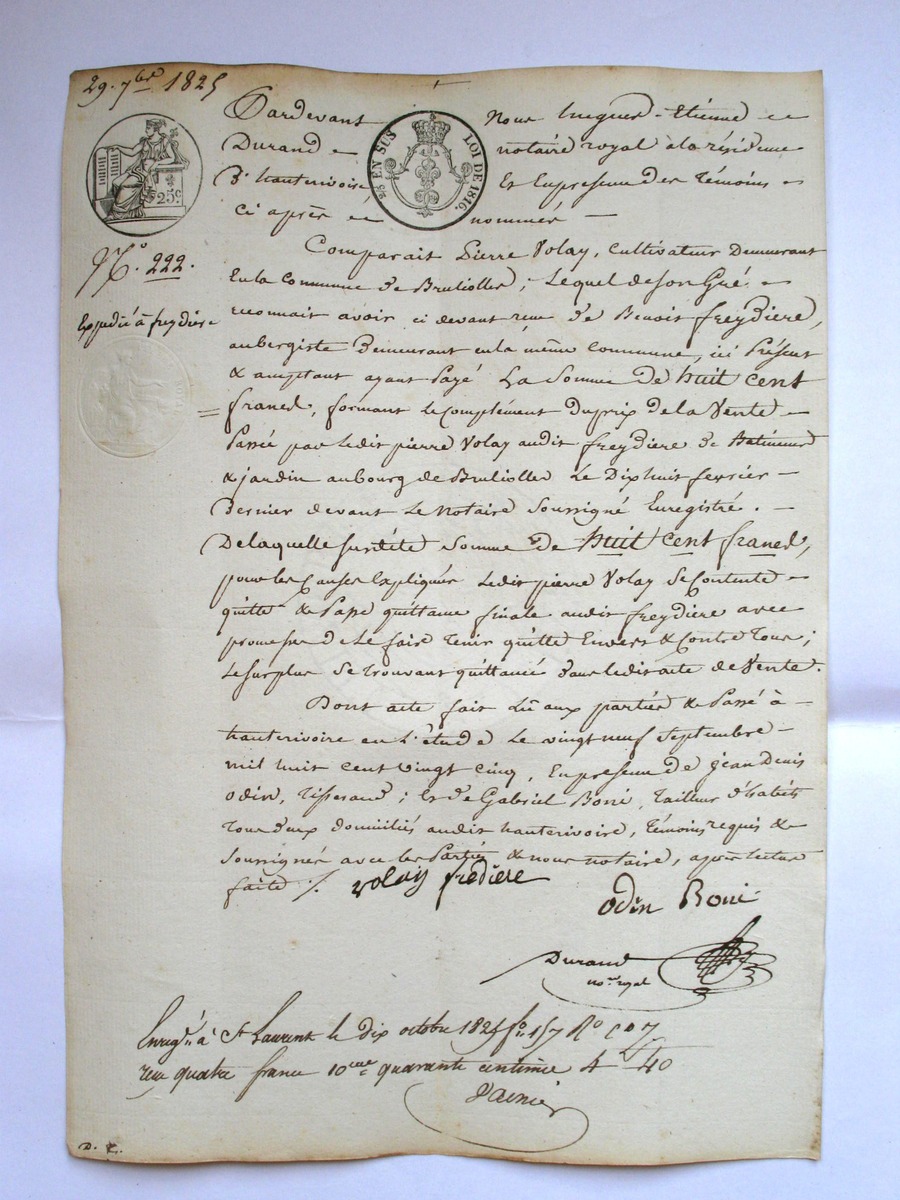 29. 7bre 1825
Pardevant Nous hugues-Etienne
Durand notaire royal à la résidence
25 EN SUS LOI DE 1816.
D'hauterivoire Et En presence des témoins
25c.
Ci après nommés
Comparait Pierre Volay, Cultivateur Demeurant
No. 222.
En la Commune de Brulioles; Lequel de son Gré
Expédié à freydière
reconnait avoir ci devant reçu de Benoit freydiere,
aubergiste Demeurant en la même Commune, ici Présent
& acceptant ayant Payé La Somme De huit cent
francs, formant le Complément du prix de la Vente
Passée par ledit pierre Volay audit freydiere de Batiments
& jardin au bourg de Brulioles Le Dix huit fevrier
Dernier devant le Notaire Soussigné Enregistré.
De laquelle susdite Somme de huit cent francs,
pour les Causes Expliquées Ledit pierre Volay Se Contente
quitte & Passe quittance finale audit freydiere avec
promesse de le faire tenir quitte Envers & Contre Tous;
Le surplus se trouvant quittancé dans ledit acte de Vente.
Dont acte fait Lû aux parties & Passé à
hauterivoire en L'étude Le vingt neuf Septembre
mil huit cent vingt cinq, En presence de jean Denis
Odin, Tisserand; Et de Gabriel Boni, Tailleur d'habits
Tous deux domiciliés audit hauterivoire, Témoins requis &
Soussignés avec les Parties & nous notaire, après lecture
faite ./. volay fredière
Odin Boni
Durand
nore royal
Enregé à St Laurent le dix octobre 1825 fo 157 Ro Ce 7
reçu quatre francs 10eme quarante centimes 4 40
D. L.